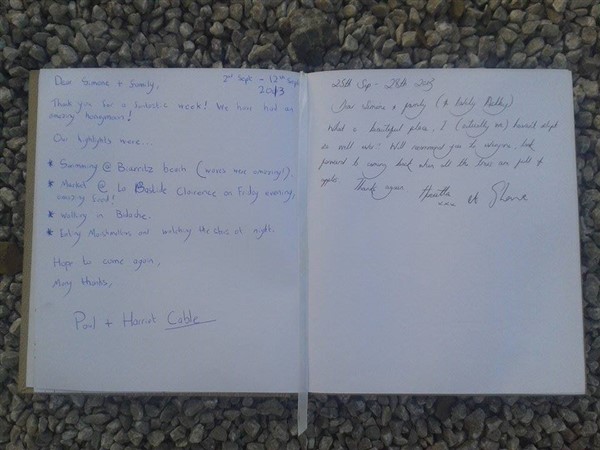 Dear Simone + family,
2nd Sept - 12th Sept
2013
Thank you for a fantastic week! We have had an
amazing honeymoon!
Our highlights were...
* Swimming @ Biarritz beach (waves were amazing!).
* Market @ La Bastide Clairence on Friday evening,
amazing food!
* Walking in
* Eating Marshmallows and watching the stars at night.
Hope to come again,
Many thanks,
Paul + Harriet Cable
25th Sep - 28th
Dear Simone & family (&
What a beautiful place. I (actually we) haven't slept
so well Will recommend you to everyone, look
forward to coming back when all the trees are full of
apples. Thank again.
xxx & Shane